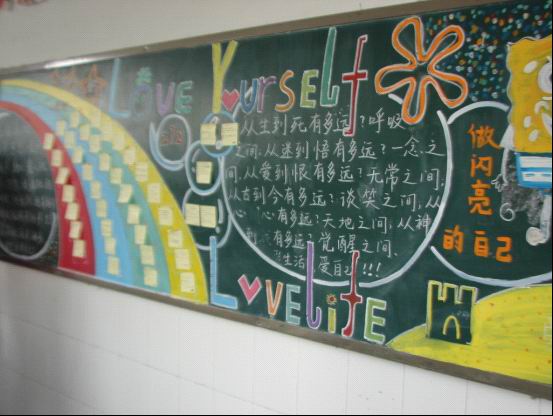 Love Yourself
从生到死有多远？呼吸
之间，从迷到悟有多远？一念之
间，从爱到恨有多远？无常之间，
从古到今有多远？谈笑之间，从
心 心有多远？天地之间，从神
到 有多远？觉醒之间，
生活 爱自己!!!
Love life
做
闪
亮
的自己